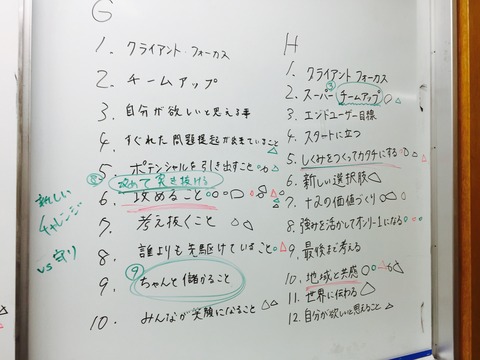 G
1. クライアント・フォーカス
2. チームアップ
3. 自分が欲しいと思える事
4. すぐれた問題提起が出来ていること
5. ポテンシャルを引き出すこと
攻めて突き抜ける
6. 攻めること
7. 考え抜くこと
8. 誰よりも先駆けていること
9. ちゃんと儲かること
⑨
10. みんなが笑顔になること
新しい
チャレンジ
vs 守り
H
1. クライアント・フォーカス
③
2. スーパーチームアップ
3. エンドユーザー目標
4. スタートに立つ
5. しくみをつくってカタチにする
6. 新しい選択肢
7. +αの価値づくり
8. 強みを活かしてオンリー1になる
9. 最後まで考える
10. 地域と共感
11. 世界に伝わる
12. 自分が欲しいと思えること